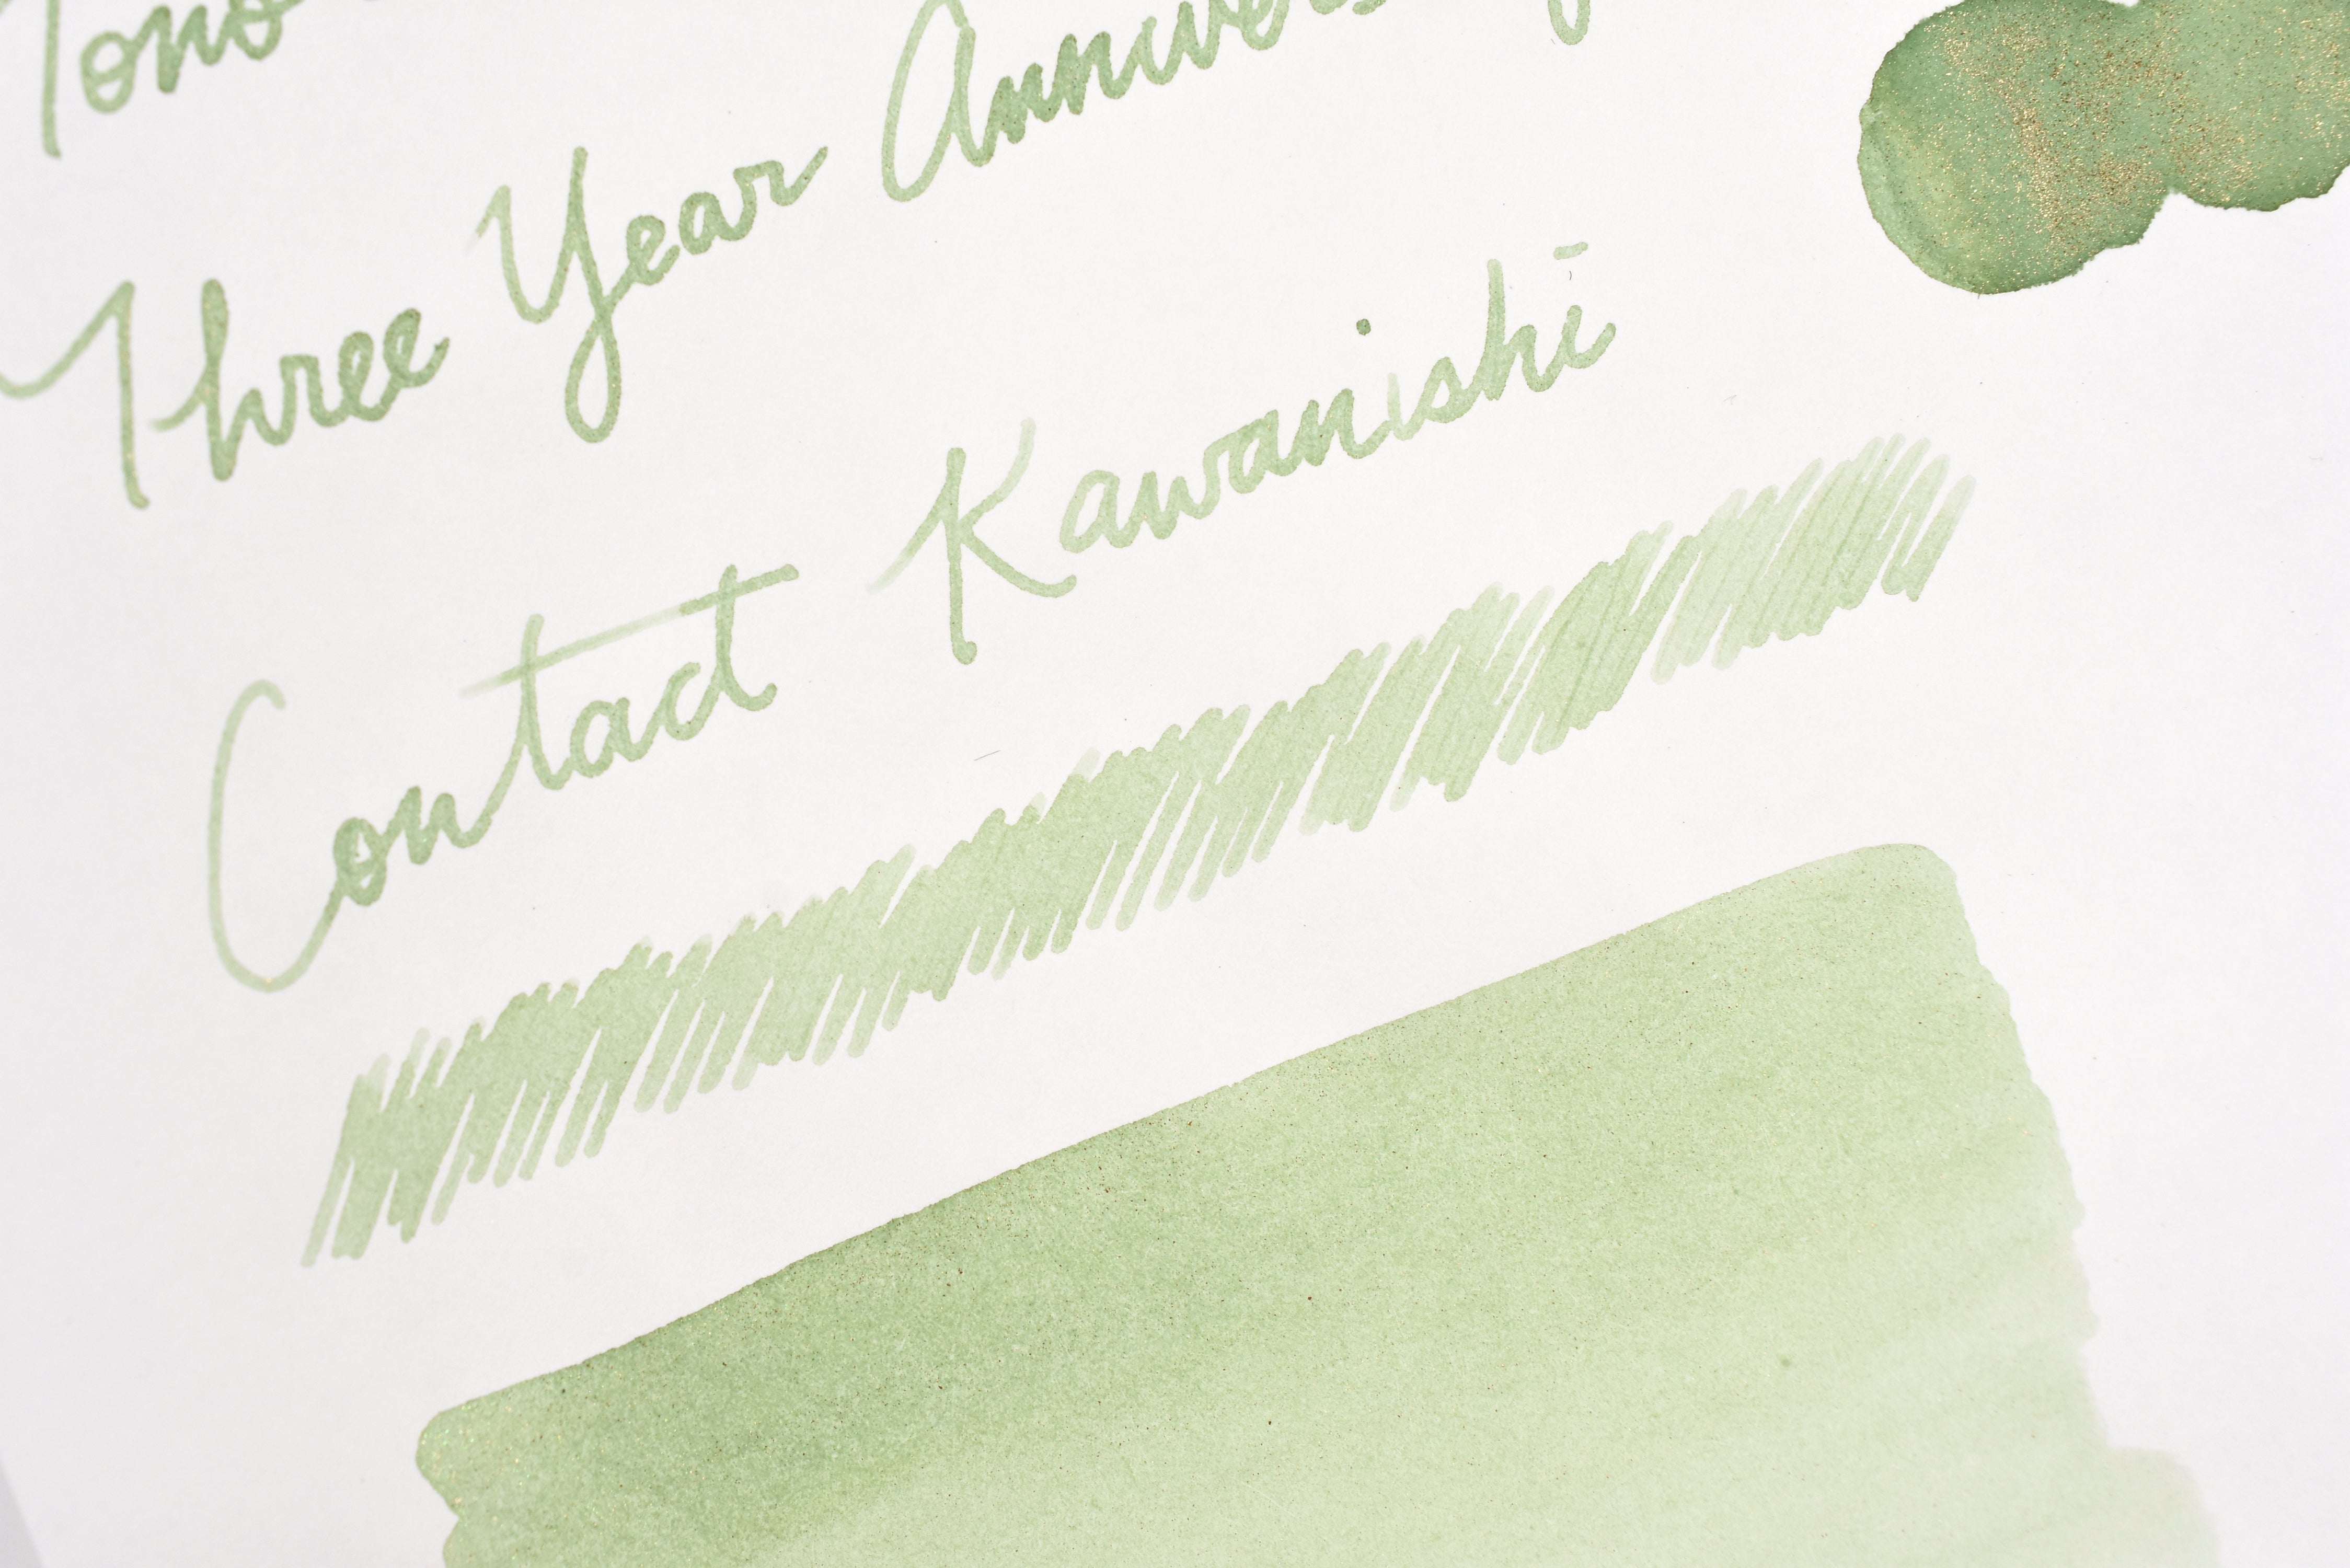 Tono
Three Year Anniversary
Contact Kawanishi